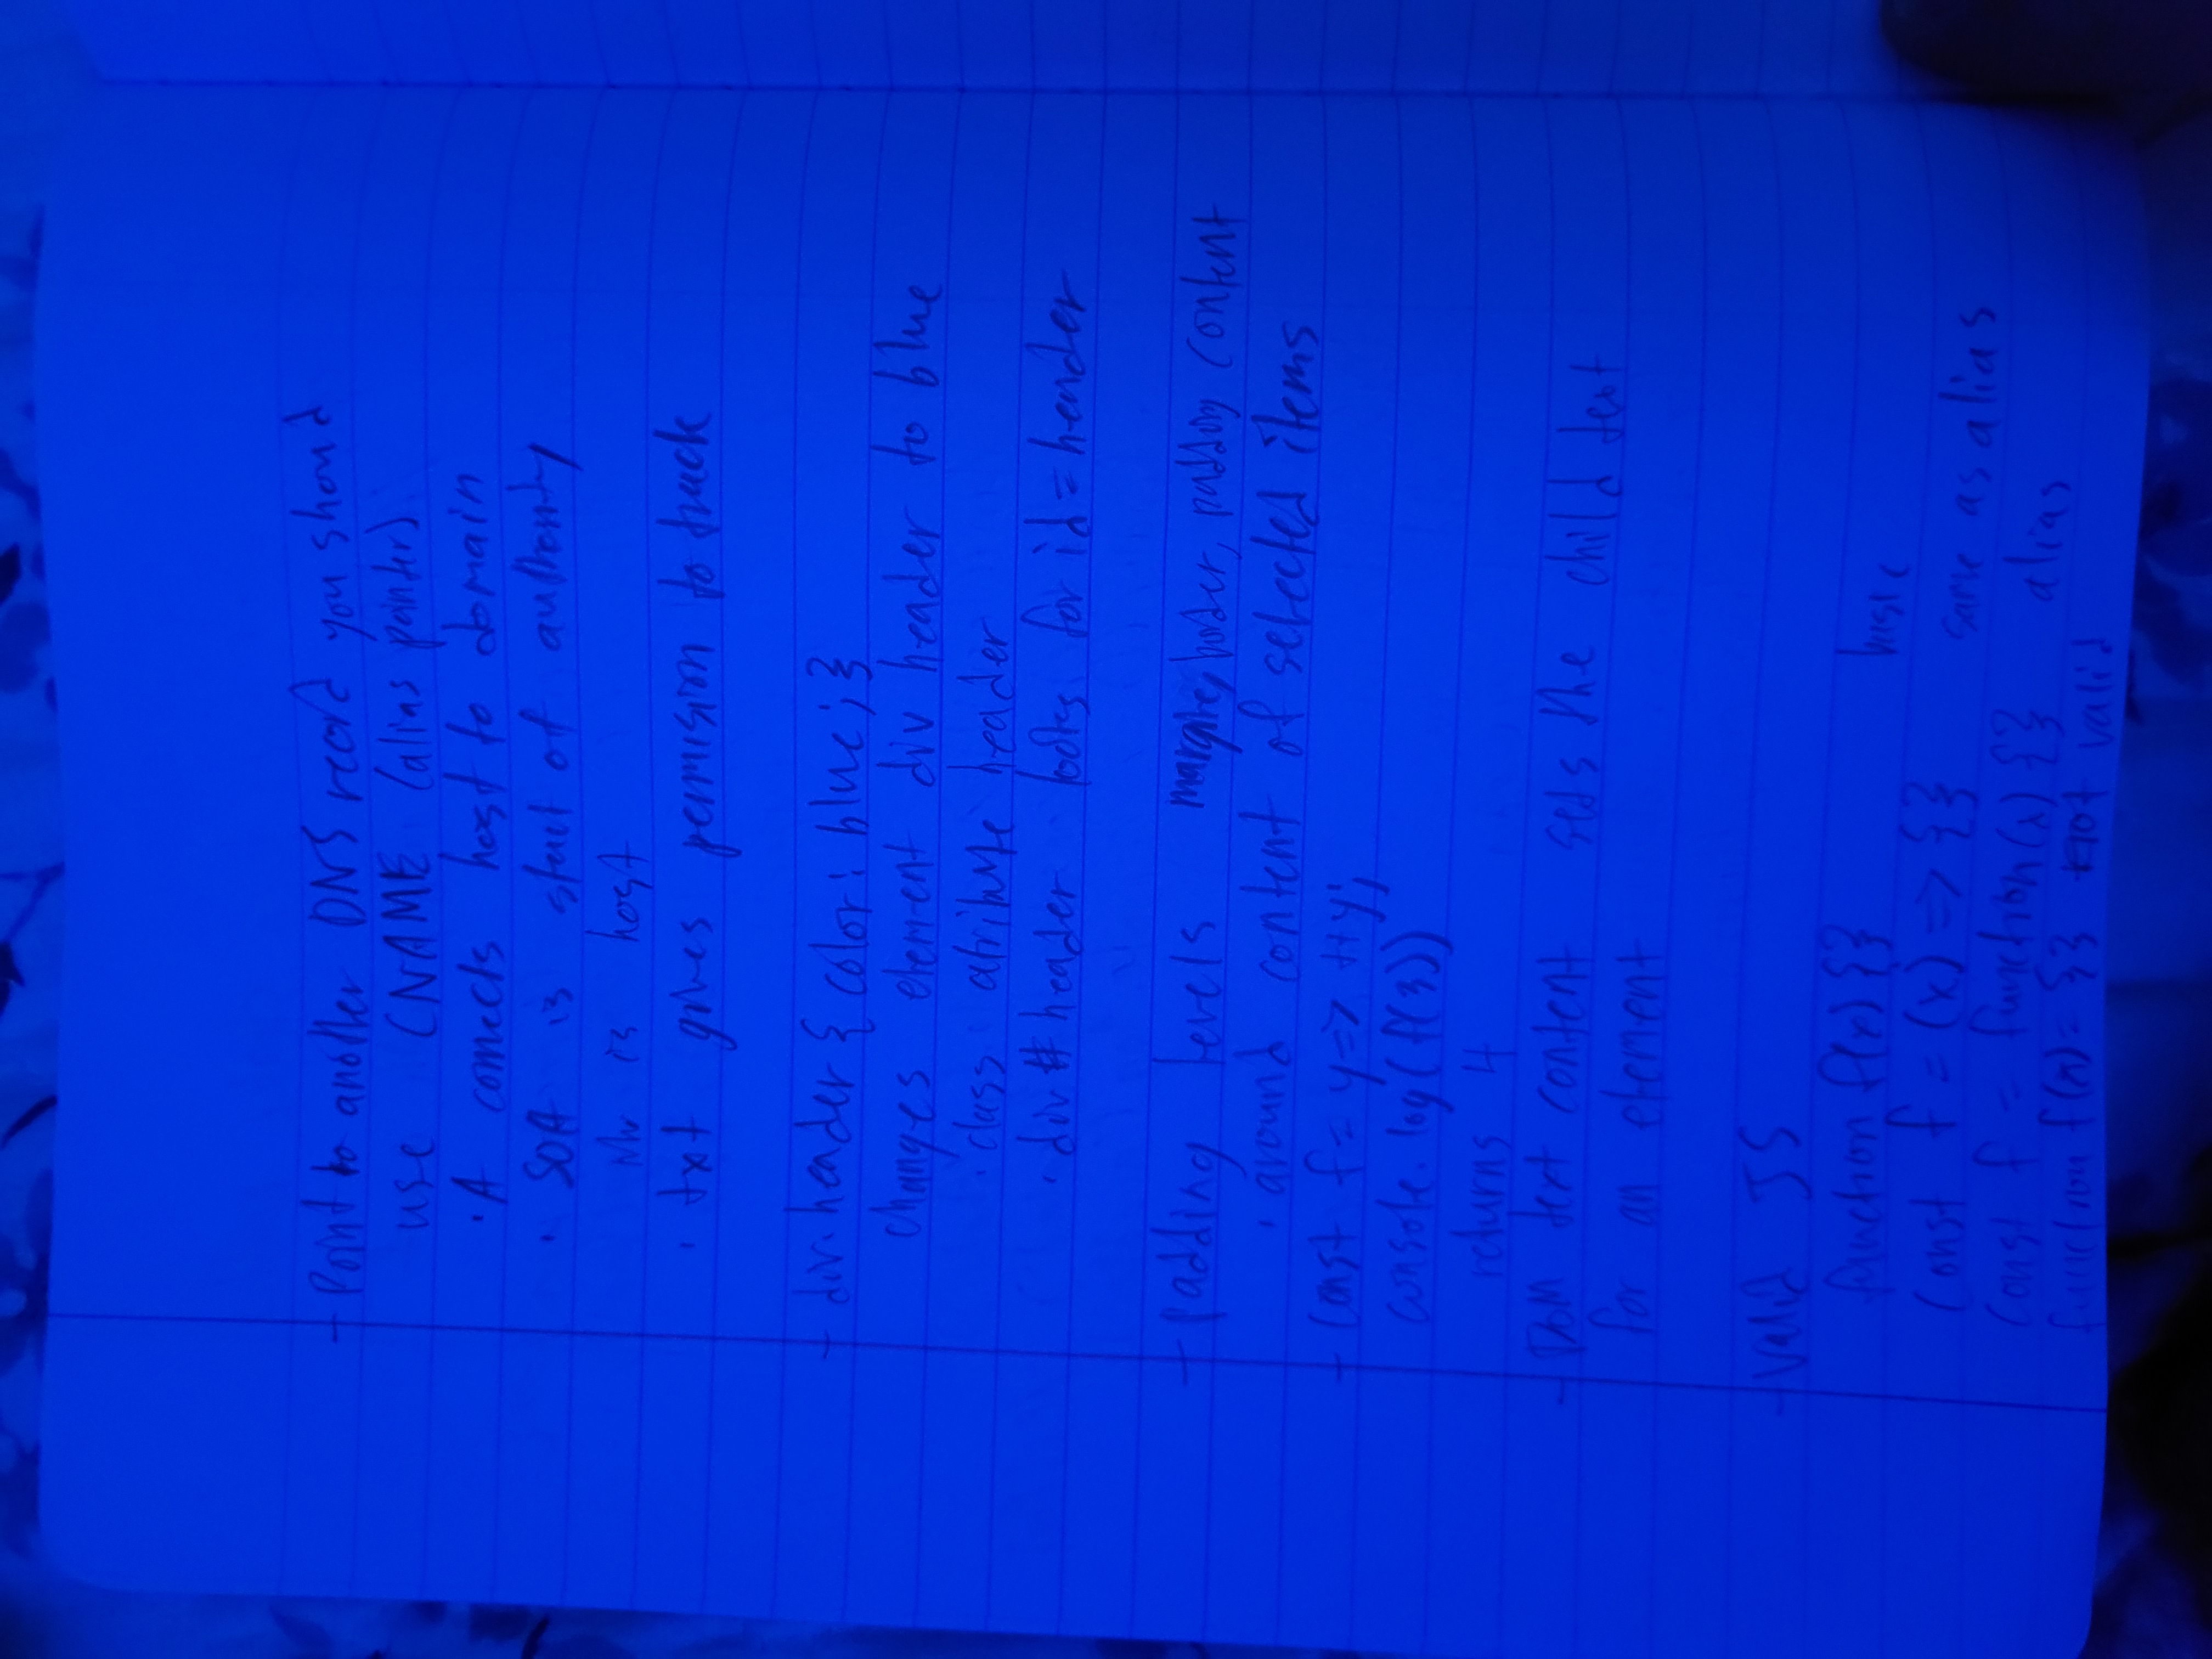 - Point to another DNS record you should
use CNAME (alias pointer)
· A connects host to domain
· SOA is start of authority
is host
· txt gives permision to track
- div.header { color: blue; }
changes element div header to blue
· class atribute header
· div#header looks for id = header
- padding levels margine, border, padding content
· around content of selected items
- const f = y => ++y;
console.log(f(3))
returns 4
- DOM text content sets the child text
for an element
- Valid JS
function f(x) {} basic
const f = (x) => {} same as alias
const f = function(x) {} alias
function f(x) = {} not valid